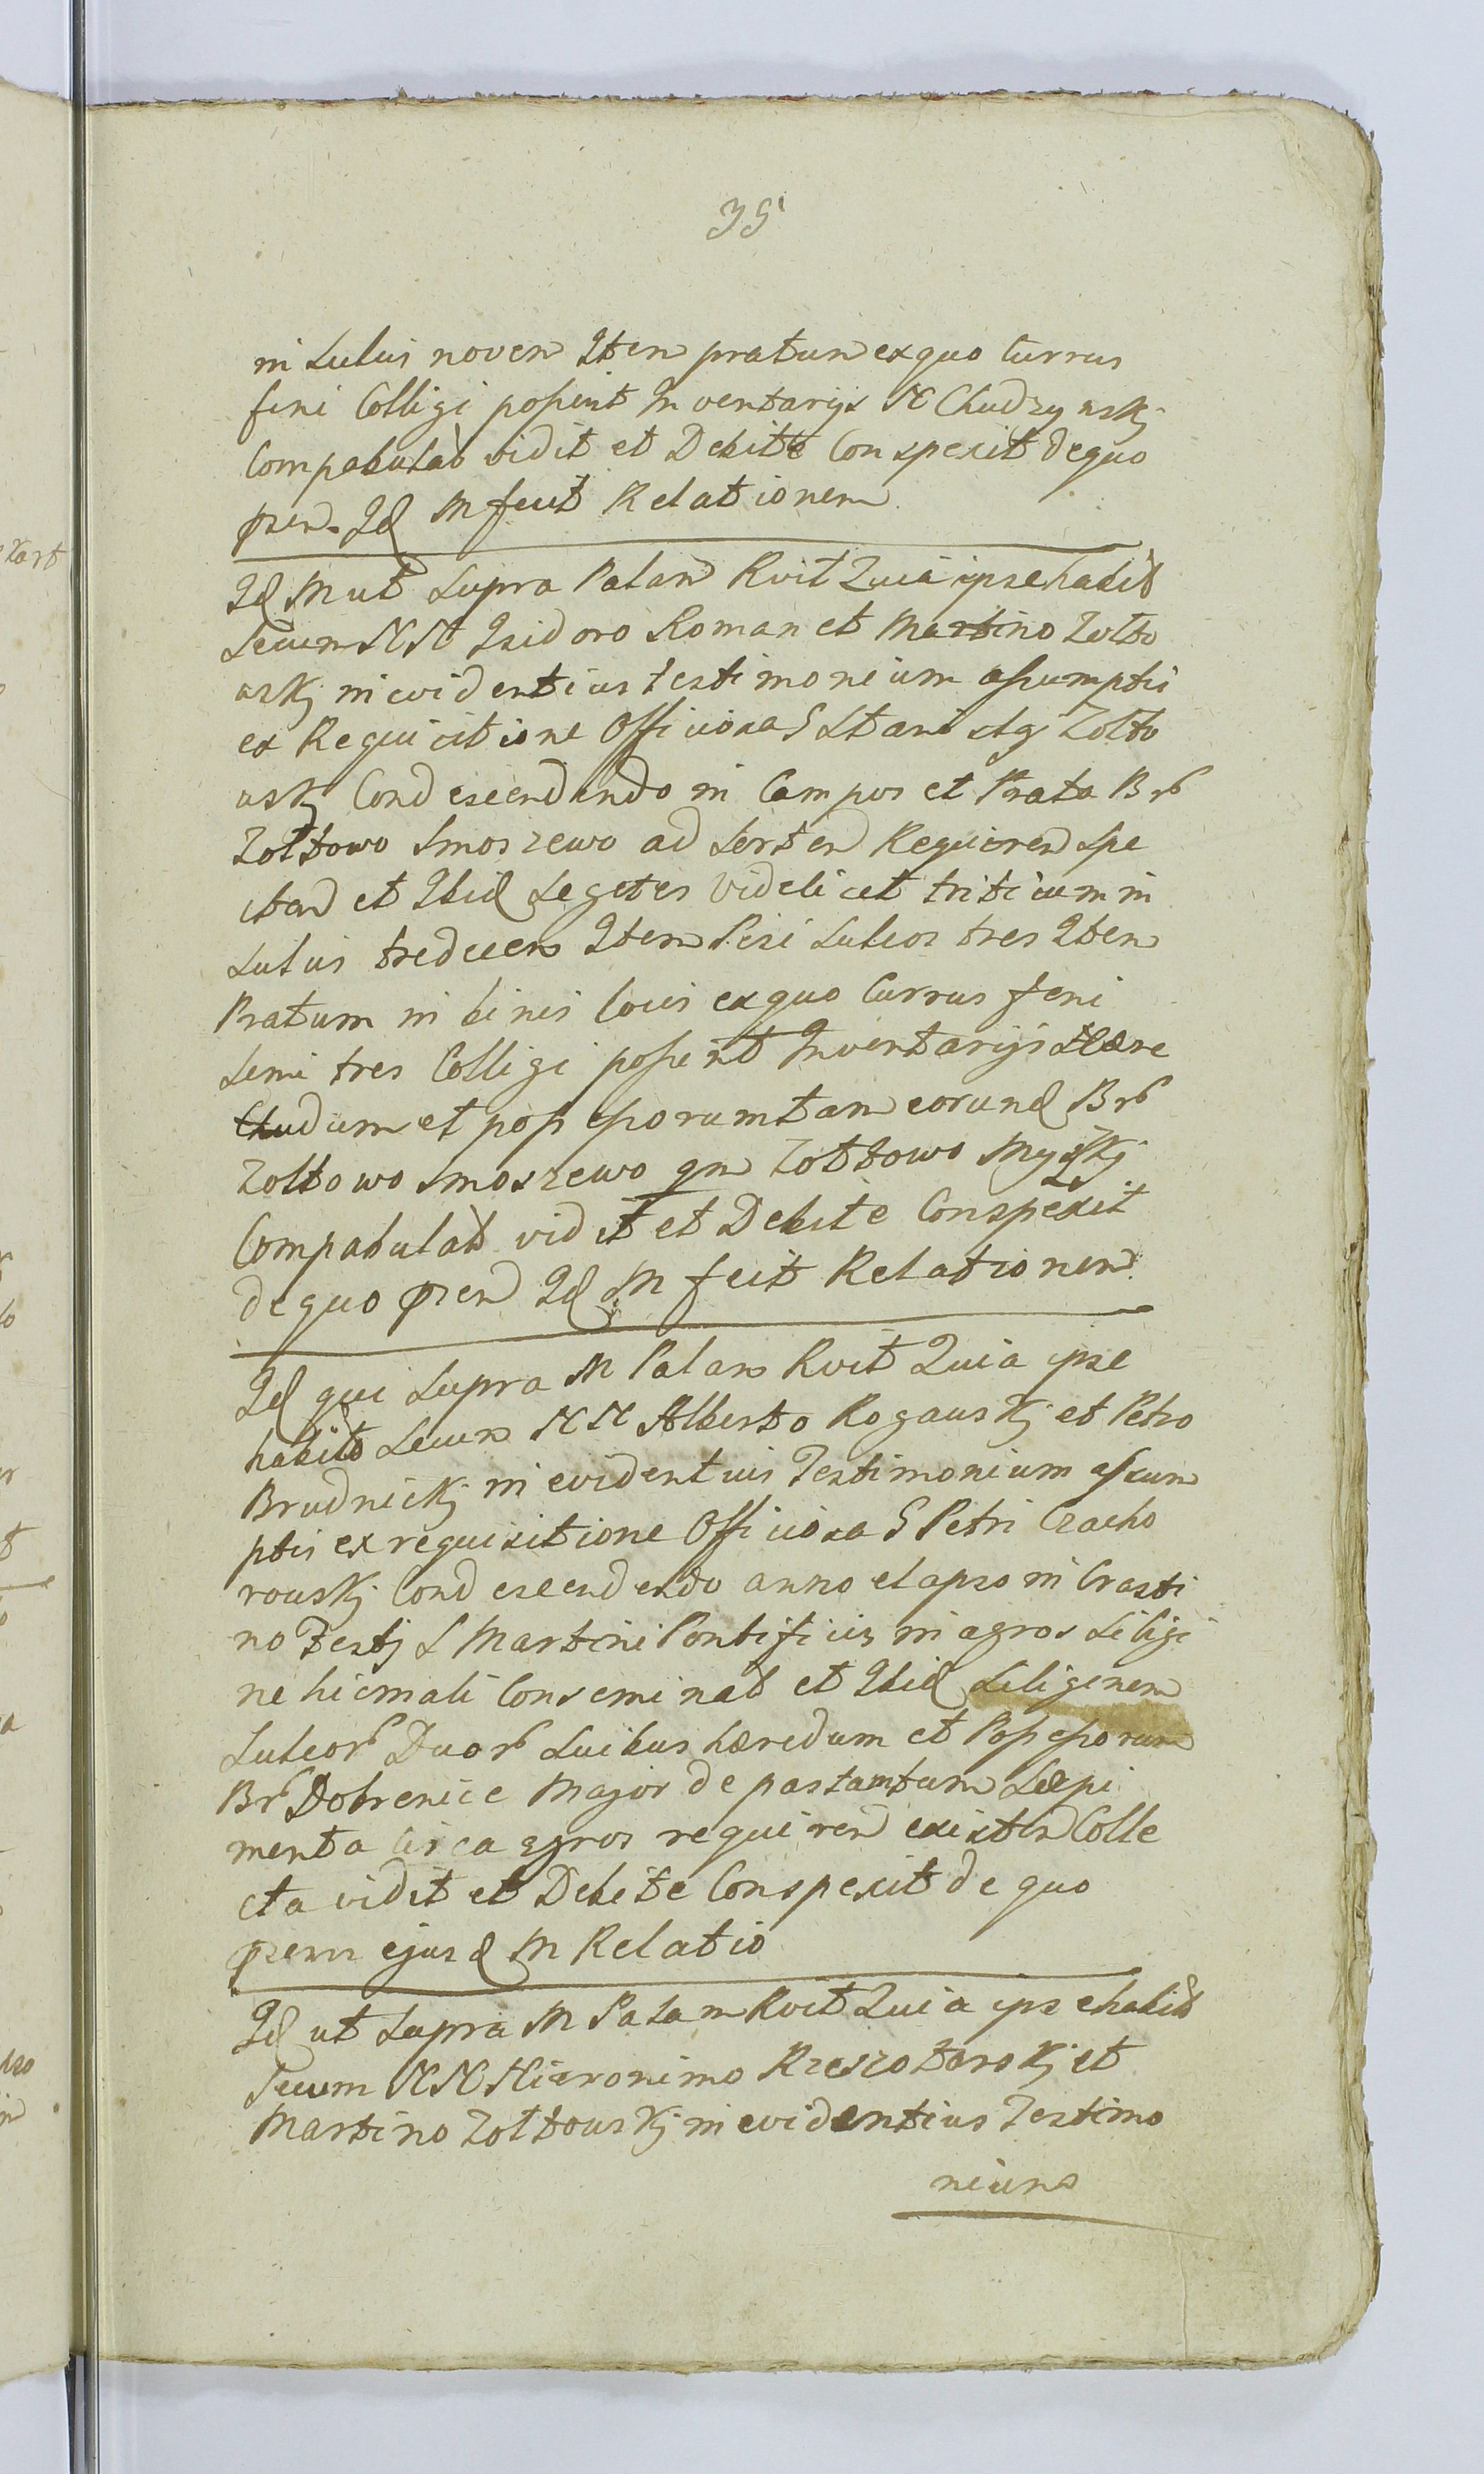 35
in Sulcis noven Iten pratum ex quo Currus
feni Colligi possent Inventarijs N Chudzynskj
Compabulat vidit et Debite Conspexit de quo
pren. Id M fecit Relationem
Id M ut Supra Palam Rvit Quia ipse habit
Secum NN Isidoro Roman et Martino Zolto
wskj in evidentius testimonium assumptis
ex Requisitione Officiosa S Stanislaj Zolto
wskj Condescendendo in Campos et Prata Br
Zoltowo Smoszewo ad Sorten Requiren Spe
ctan et Ibid Segetes Videlicet triticum in
Sulcis tredecem Iten Pisi Sulcos tres Iten
Pratum in binis locis ex quo Currus feni
Semi tres Colligi possent Inventarijs Hære
dum et possessorum tam eorund Br
Zoltowo Smoszewo qm Zoltowo Myskj
Compabulat vidit et Debite Conspexit
de quo pren Id M fecit Relationem
Id qui Supra M Palam Rvit Quia ipse
habito Secum NN Alberto Rogauskj et Petro
Brudnickj in evidentius Testimonium assum
ptis ex requisitione Officiosa S Petri Czacho
rouskj Condescendendo anno elapso in Crasti
no Festj S Martini Pontificis in agros Siligi
ne hiemali Conseminat et Ibid Siliginem
Sulcor Duor Suibus hæredum et Possessorum
Br Dobrenice Major depastam tum Sæpi
menta circa agros requiren existen Colle
cta vidit et Debite Conspexit de quo
prens ejusd M Relatio
Id ut Supra M Palam Rvit Quia ipse habit
Secum NN Hieronimo Rzeszotarskj et
Martino Zoltouskj in evidentius Testimo
nium